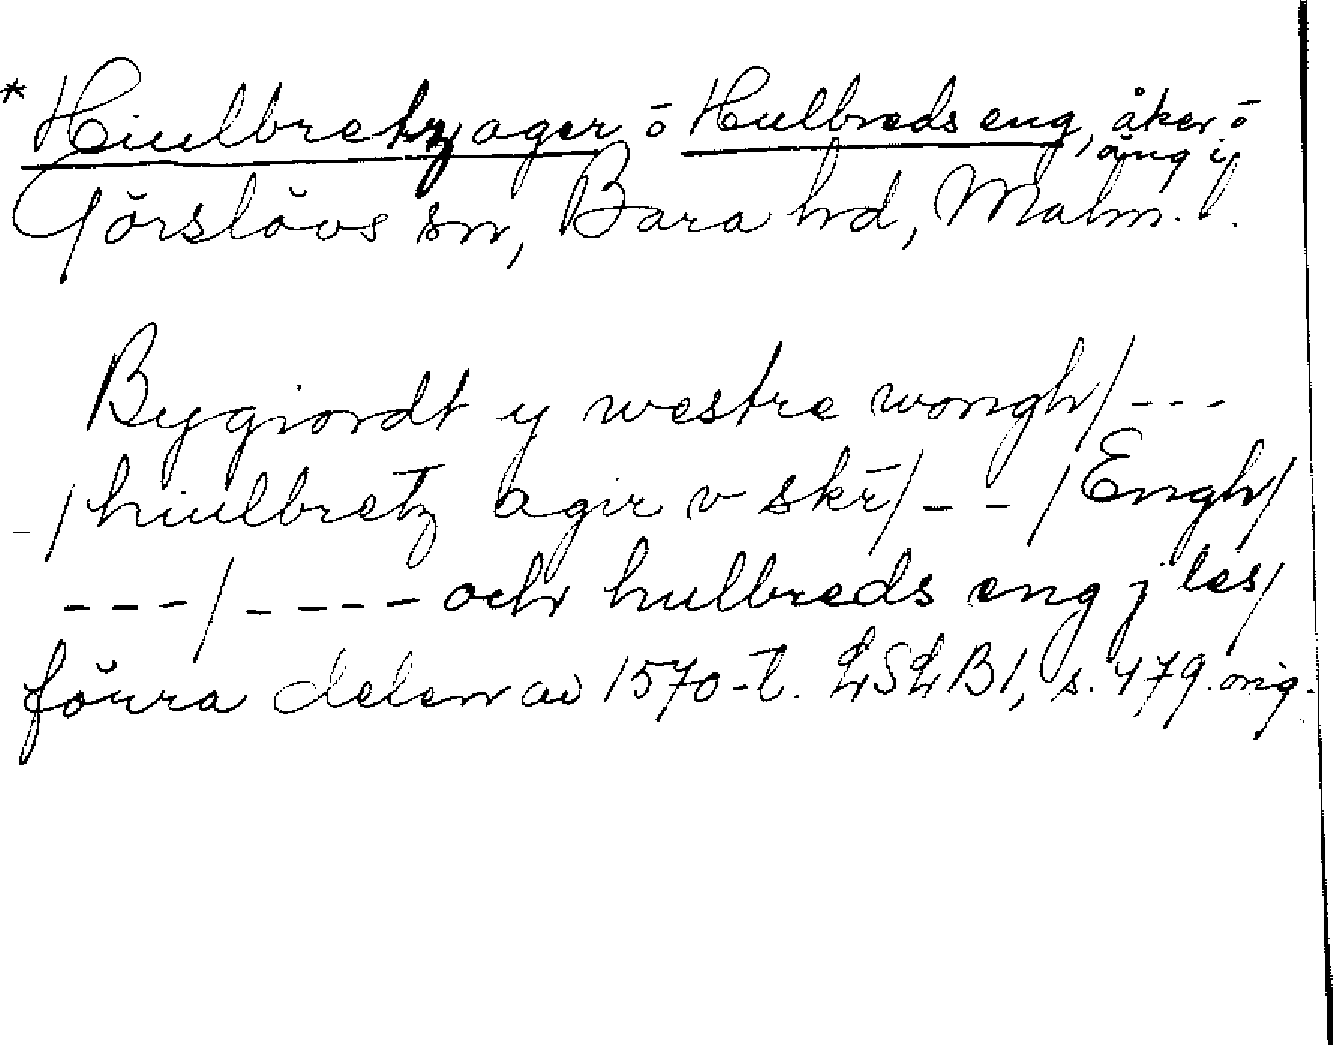 * Hiulbretz ager o Hulbreds eng, åker o
äng i
Görslövs sn, Bara hd, Malm. l.
Bygiordt y westre wongh/ ---
-/ hiulbretz agir v skr/ - - -/ Engh/
---/ ---- och hulbreds eng j les/
föura delen av 1570-t. LSLB1, s. 479. orig.